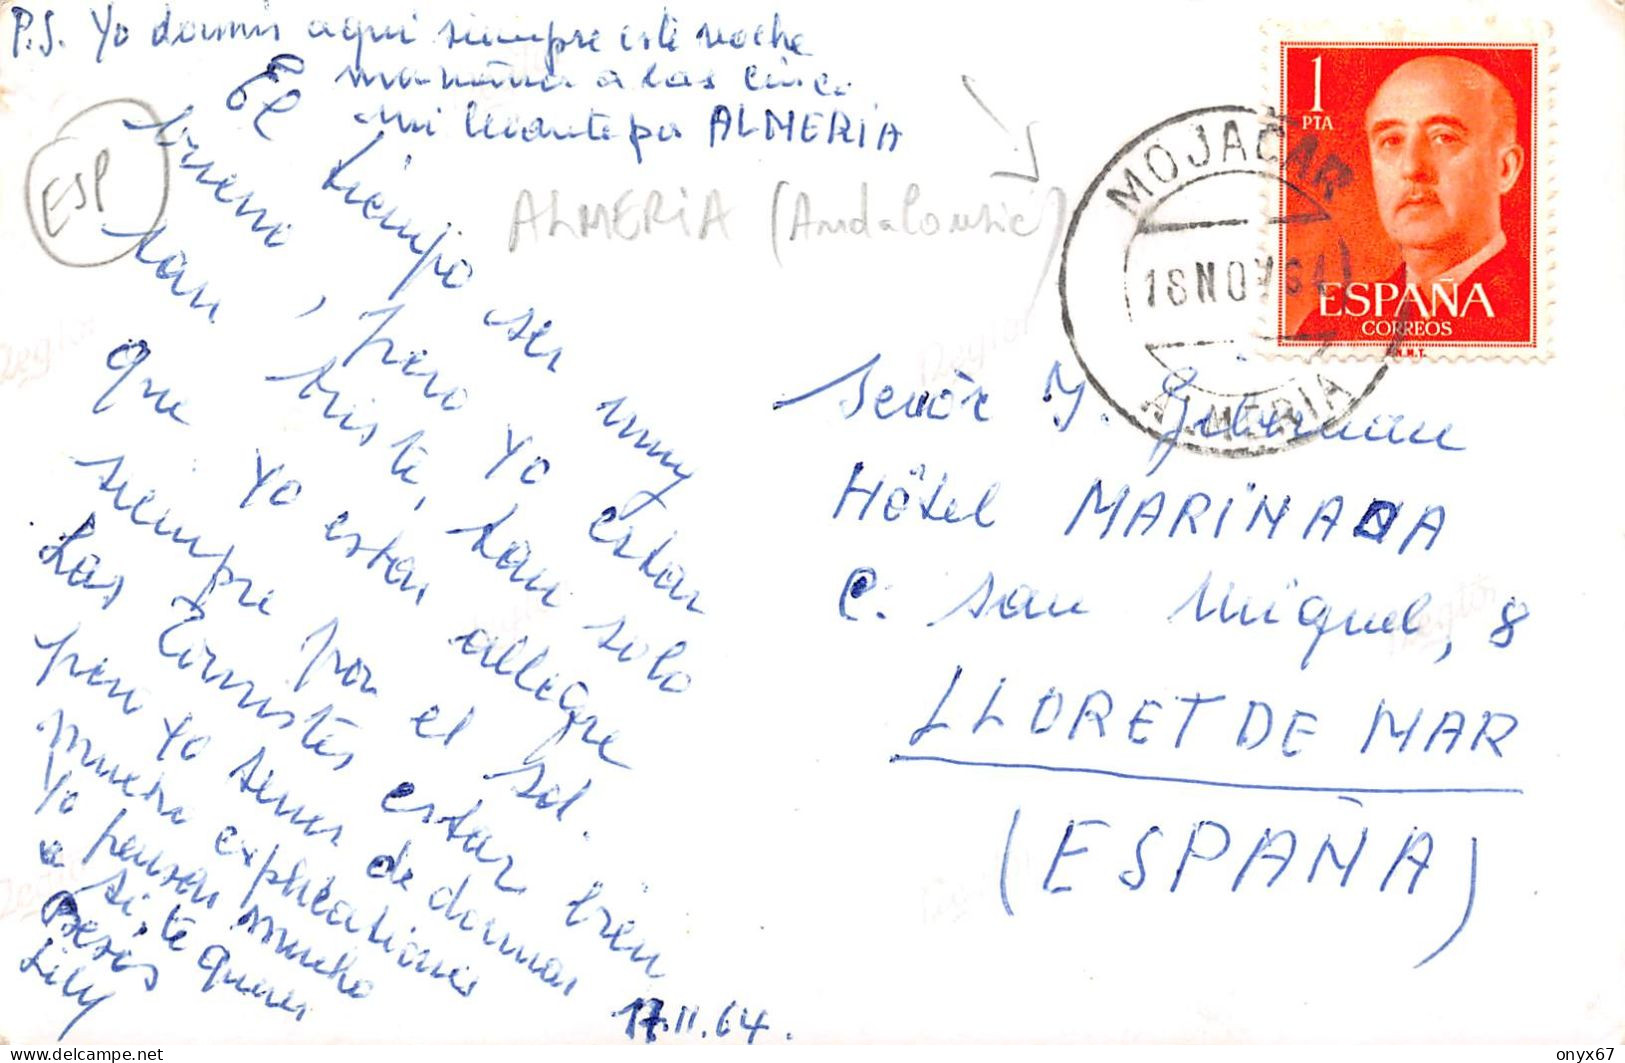 P.S. Yo dormir aqui siempre esté noche
manana a las cinco
mi levante por ALMERIA
El tiempo ser muy
bueno, pero yo estar
tan triste, tan solo
que yo estar allegre
siempre por el sol.
Las Touristes estar bien
pero yo tener de donnar
mucho explicationes
Yo pensar mucho
a ti, te queres
Besos
Lily
17.11.64.
ESP
ALMERIA (Andalousie)
MOJACAR
18 NOV 64
ALMERIA
1
PTA
ESPAÑA
CORREOS
F.N.M.T.
Señor Y.
Hôtel MARINADA
C. San Miguel, 8
LLORET DE MAR
(ESPAÑA)
delcampe.net
onyx67